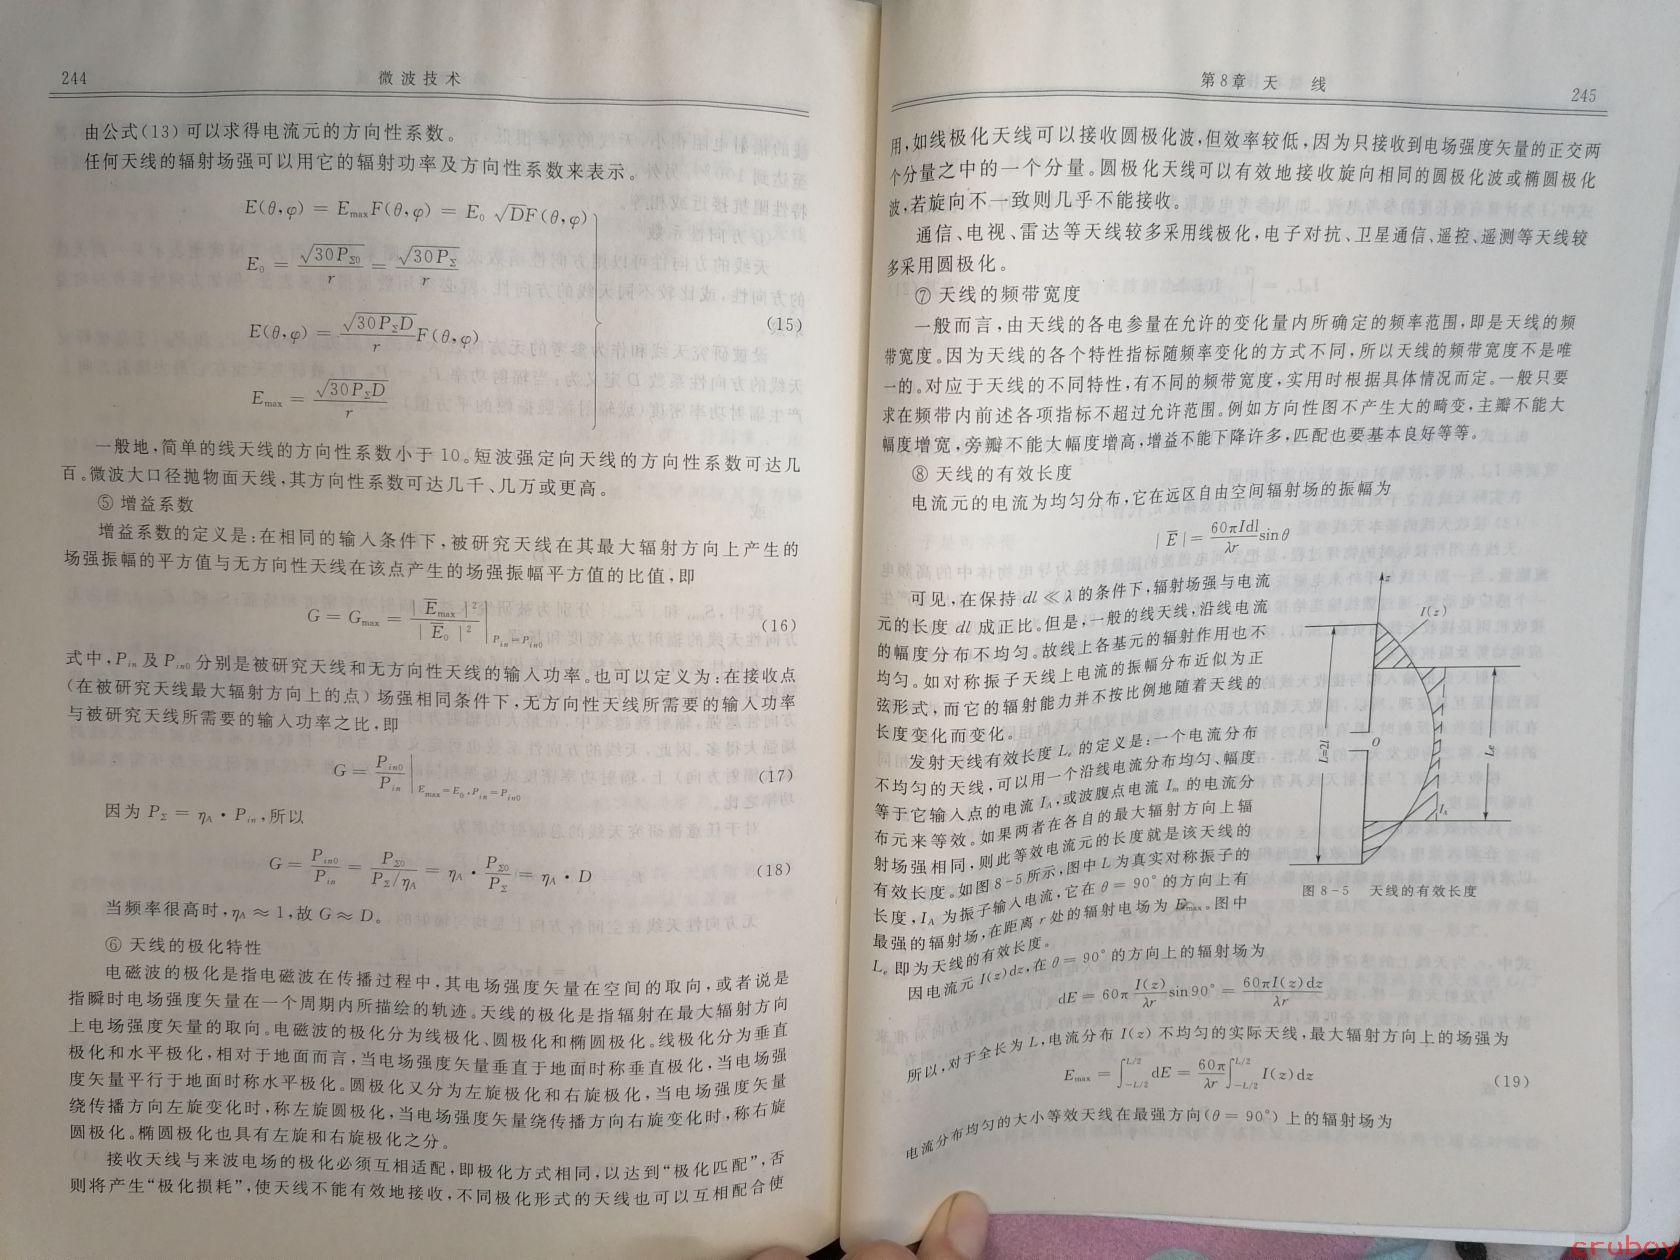 244
微波技术
由公式(13)可以求得电流元的方向性系数。
任何天线的辐射场强可以用它的辐射功率及方向性系数来表示。
E(θ,φ) = E_max F(θ,φ) = E₀ √D F(θ,φ)
E₀ = √30P_Σ0 / r = √30P_Σ / r
E(θ,φ) = √30P_ΣD / r F(θ,φ)
(15)
E_max = √30P_ΣD / r
一般地,简单的线天线的方向性系数小于10。短波强定向天线的方向性系数可达几
百。微波大口径抛物面天线,其方向性系数可达几千、几万或更高。
⑤ 增益系数
增益系数的定义是:在相同的输入条件下,被研究天线在其最大辐射方向上产生的
场强振幅的平方值与无方向性天线在该点产生的场强振幅平方值的比值,即
G = G_max = |E̅_max|² / |E̅₀|² |_{P_in=P_in0} (16)
式中,P_in 及 P_in0 分别是被研究天线和无方向性天线的输入功率。也可以定义为:在接收点
(在被研究天线最大辐射方向上的点)场强相同条件下,无方向性天线所需要的输入功率
与被研究天线所需要的输入功率之比,即
G = P_in0 / P_in |_{E_max=E₀,P_in=P_in0} (17)
因为 P_Σ = η_A · P_in,所以
G = P_in0 / P_in = P_Σ0 / (P_Σ/η_A) = η_A · P_Σ0 / P_Σ = η_A · D (18)
当频率很高时,η_A ≈ 1,故 G ≈ D。
⑥ 天线的极化特性
电磁波的极化是指电磁波在传播过程中,其电场强度矢量在空间的取向,或者说是
指瞬时电场强度矢量在一个周期内所描绘的轨迹。天线的极化是指辐射在最大辐射方向
上电场强度矢量的取向。电磁波的极化分为线极化、圆极化和椭圆极化。线极化分为垂直
极化和水平极化,相对于地面而言,当电场强度矢量垂直于地面时称垂直极化,当电场强
度矢量平行于地面时称水平极化。圆极化又分为左旋极化和右旋极化,当电场强度矢量
绕传播方向左旋变化时,称左旋圆极化,当电场强度矢量绕传播方向右旋变化时,称右旋
圆极化。椭圆极化也具有左旋和右旋极化之分。
接收天线与来波电场的极化必须互相适配,即极化方式相同,以达到“极化匹配”,否
则将产生“极化损耗”,使天线不能有效地接收,不同极化形式的天线也可以互相配合使
第8章 天 线
245
用,如线极化天线可以接收圆极化波,但效率较低,因为只接收到电场强度矢量的正交两
个分量之中的一个分量。圆极化天线可以有效地接收旋向相同的圆极化波或椭圆极化
波,若旋向不一致则几乎不能接收。
通信、电视、雷达等天线较多采用线极化,电子对抗、卫星通信、遥控、遥测等天线较
多采用圆极化。
⑦ 天线的频带宽度
一般而言,由天线的各电参量在允许的变化量内所确定的频率范围,即是天线的频
带宽度。因为天线的各个特性指标随频率变化的方式不同,所以天线的频带宽度不是唯
一的。对应于天线的不同特性,有不同的频带宽度,实用时根据具体情况而定。一般只要
求在频带内前述各项指标不超过允许范围。例如方向性图不产生大的畸变,主瓣不能大
幅度增宽,旁瓣不能大幅度增高,增益不能下降许多,匹配也要基本良好等等。
⑧ 天线的有效长度
电流元的电流为均匀分布,它在远区自由空间辐射场的振幅为
|E̅| = 60πIdl / λr sinθ
可见,在保持 dl ≪ λ 的条件下,辐射场强与电流
元的长度 dl 成正比。但是,一般的线天线,沿线电流
的幅度分布不均匀。故线上各基元的辐射作用也不
均匀。如对称振子天线上电流的振幅分布近似为正
弦形式,而它的辐射能力并不按比例地随着天线的
长度变化而变化。
发射天线有效长度 L_e 的定义是:一个电流分布
不均匀的天线,可以用一个沿线电流分布均匀、幅度
等于它输入点的电流 I_A,或波腹点电流 I_m 的电流分
布元来等效。如果两者在各自的最大辐射方向上辐
射场强相同,则此等效电流元的长度就是该天线的
有效长度。如图8-5所示,图中 L 为真实对称振子的
长度,I_A 为振子输入电流,它在 θ = 90° 的方向上有
最强的辐射场,在距离 r 处的辐射电场为 E_max。图中
L_e 即为天线的有效长度。
z
I(z)
L=2l
O
L_e
I_A
图 8-5 天线的有效长度
因电流元 I(z)dz,在 θ = 90° 的方向上的辐射场为
dE = 60π I(z) / λr sin90° = 60πI(z)dz / λr
所以,对于全长为 L,电流分布 I(z) 不均匀的实际天线,最大辐射方向上的场强为
E_max = ∫_{-L/2}^{L/2} dE = 60π / λr ∫_{-L/2}^{L/2} I(z)dz (19)
电流分布均匀的大小等效天线在最强方向(θ = 90°)上的辐射场为
cruboy